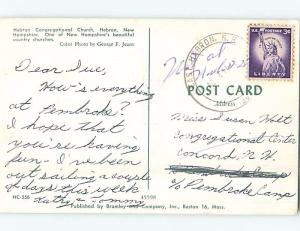 Hebron Congregational Church, Hebron, New
Hampshire. One of New Hampshire's beautiful
country churches.
Color Photo by George F. Jason
U.S. POSTAGE 3¢
LIBERTY
Not at
POST CARD
Dear Sue,
How's everything
at Pembroke?
I hope that
you're having
fun - I've been
out sailing a couple
of days this week
Kathy & Tommy
Miss Susan Holt
Congregational Center
Concord, N.H.
c/o Pembroke Camp
HC-556
45598
Published by Bromley and Company, Inc., Boston 16, Mass.